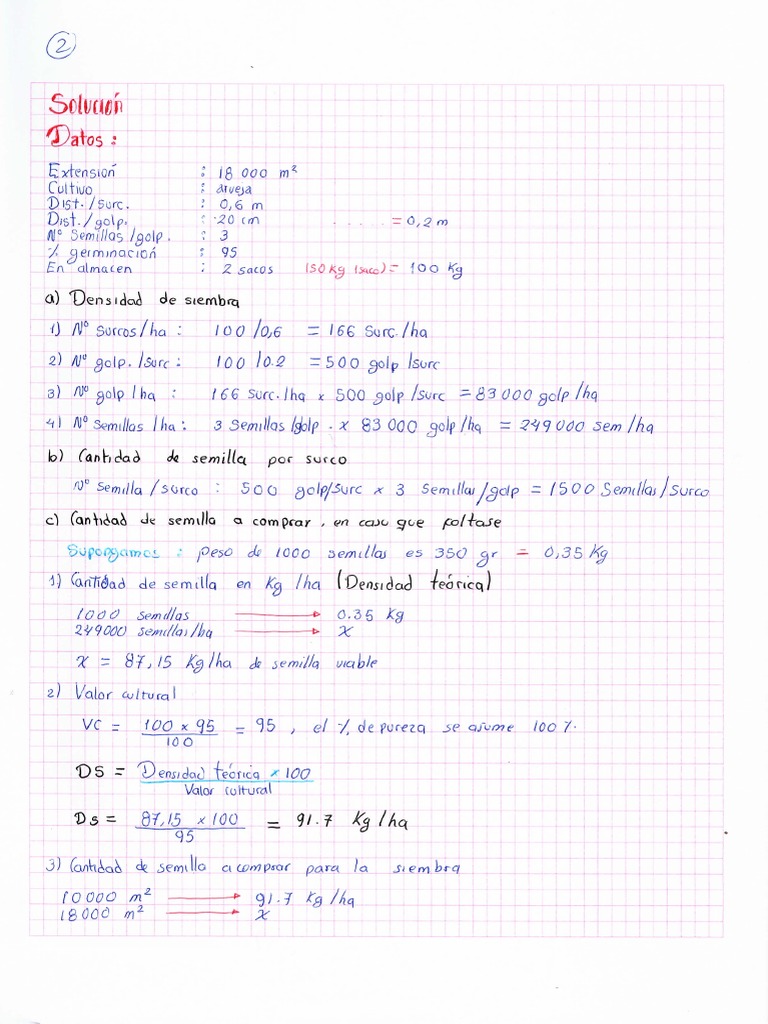 2
Solución
Datos :
Extensión : 18 000 m²
Cultivo : arveja
Dist./surc. : 0,6 m
Dist./golp. : 20 cm ..... = 0,2 m
N° Semillas /golp. : 3
% germinación : 95
En almacen : 2 sacos (50 Kg /saco) = 100 Kg
a) Densidad de siembra
1) N° surcos/ha : 100 /0,6 = 166 Surc./ha
2) N° golp. /surc : 100 /0.2 = 500 golp /surc
3) N° golp /ha : 166 surc./ha x 500 golp /surc = 83 000 golp /ha
4) N° Semillas /ha : 3 Semillas /golp . x 83 000 golp /ha = 249 000 sem /ha
b) Cantidad de semilla por surco
N° semilla / surco : 500 golp/surc x 3 Semillas/golp = 1500 Semillas/surco
c) Cantidad de semilla a comprar, en caso que faltase
Supongamos : peso de 1000 semillas es 350 gr = 0,35 Kg
1) Cantidad de semilla en Kg /ha (Densidad teórica)
1000 semillas → 0.35 Kg
249000 semillas/ha → x
x = 87,15 Kg/ha de semilla viable
2) Valor cultural
VC = 100 x 95 / 100 = 95 , el % de pureza se asume 100 %.
DS = Densidad teórica x 100 / Valor cultural
Ds = 87,15 x 100 / 95 = 91.7 Kg /ha
3) Cantidad de semilla a comprar para la siembra
10 000 m² → 91.7 Kg /ha
18 000 m² → x